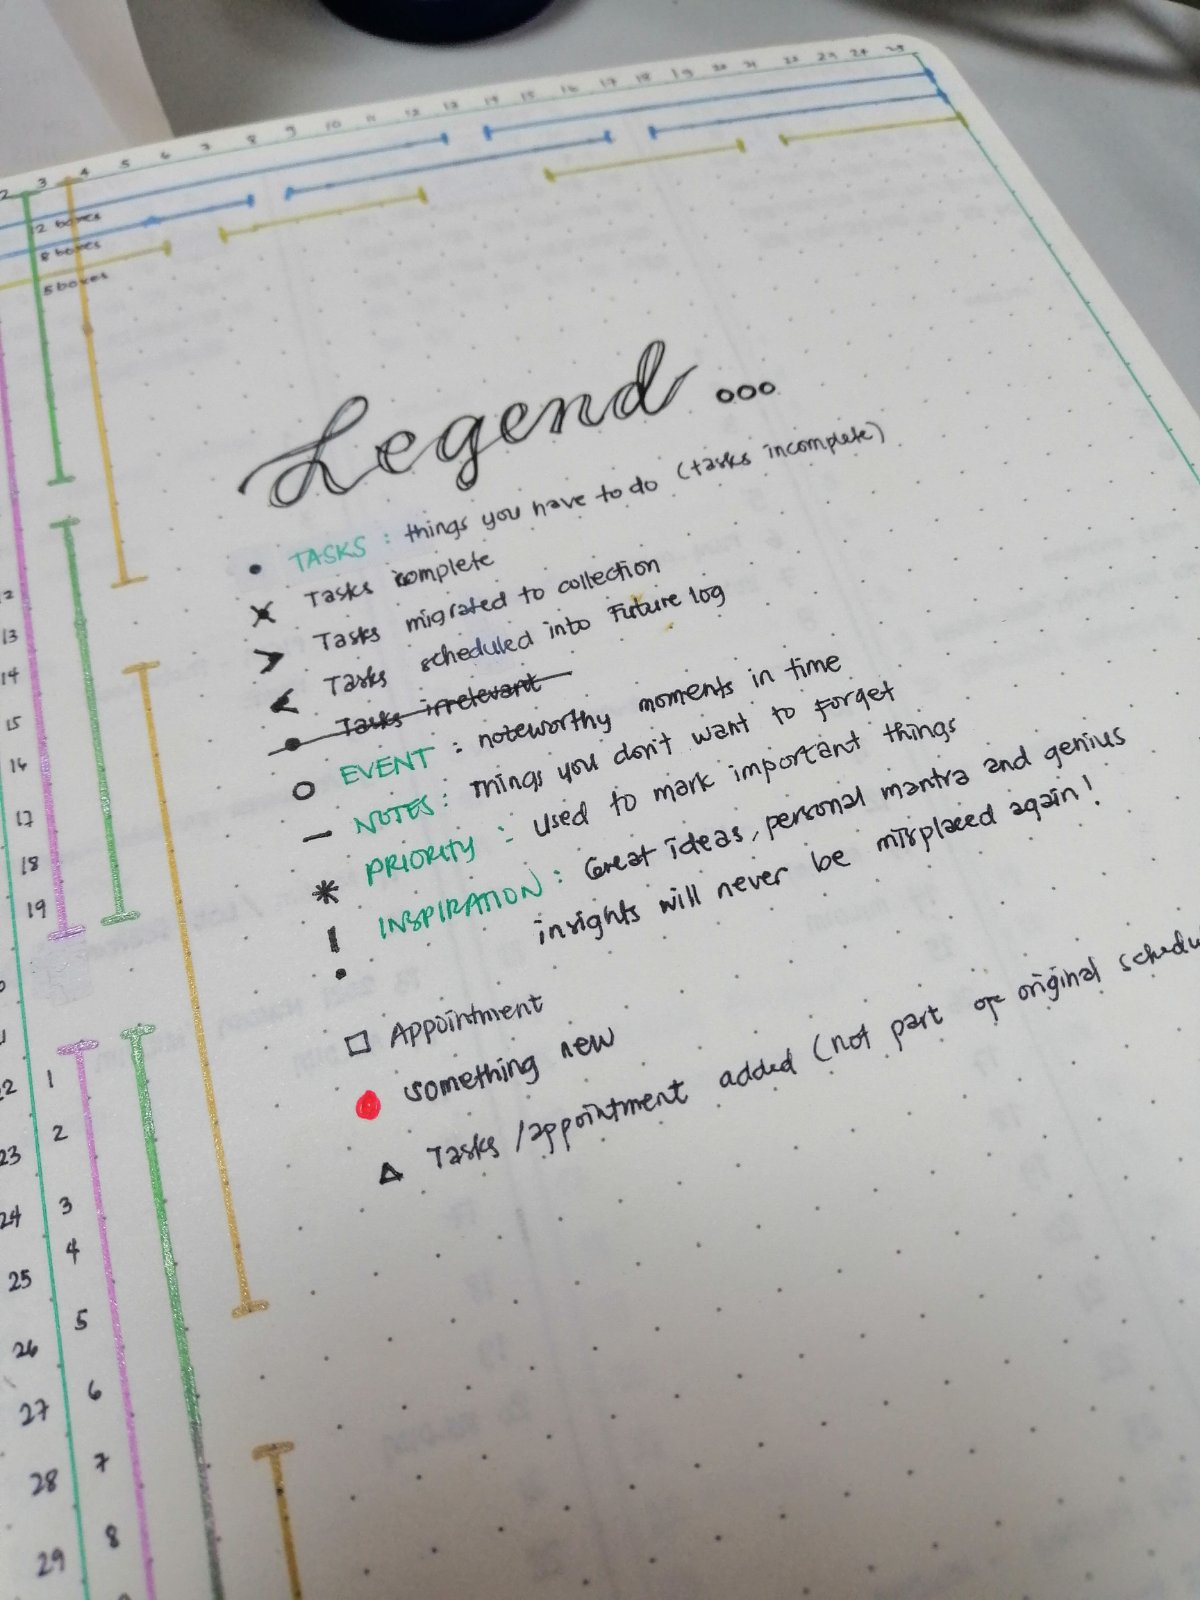 2 3 4 5 6 7 8 9 10 11 12 13 14 15 16 17 18 19 20 21 22 23 24 25
12 boxes
8 boxes
5 boxes
Legend ...
• TASKS : things you have to do (tasks incomplete)
× Tasks complete
> Tasks migrated to collection
< Tasks scheduled into Future log
• Tasks irrelevant
○ EVENT : noteworthy moments in time
— NOTES : Things you don't want to forget
* PRIORITY : Used to mark important things
! INSPIRATION : Great ideas, personal mantra and genius
insights will never be misplaced again!
□ Appointment
● something new
△ Tasks / appointment added (not part of original schedu
13
14
15
16
17
18
19
22 1
23 2
24 3
25 4
26 5
27 6
28 7
29 8